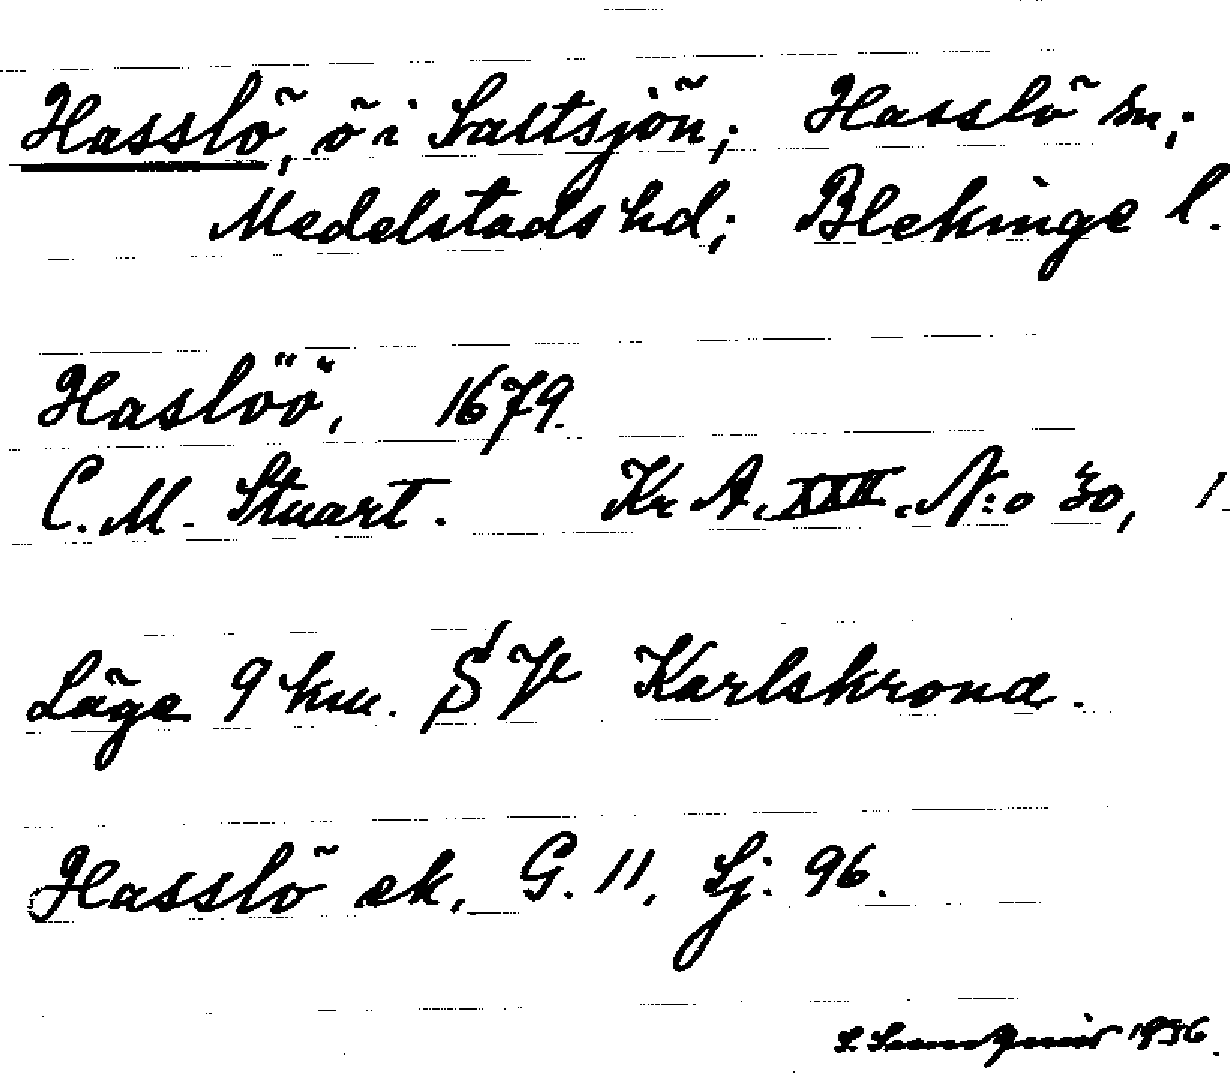 Hasslö, ö i Saltsjön; Hasslö sn;
Medelstads hd; Blekinge l.
Haslöö, 1679.
C. M. Stuart. Kr A. XXII. N:o 30, 1
Läge 9 km. SV Karlskrona.
Hasslö ek. G. 11, Lj. 96.
1936